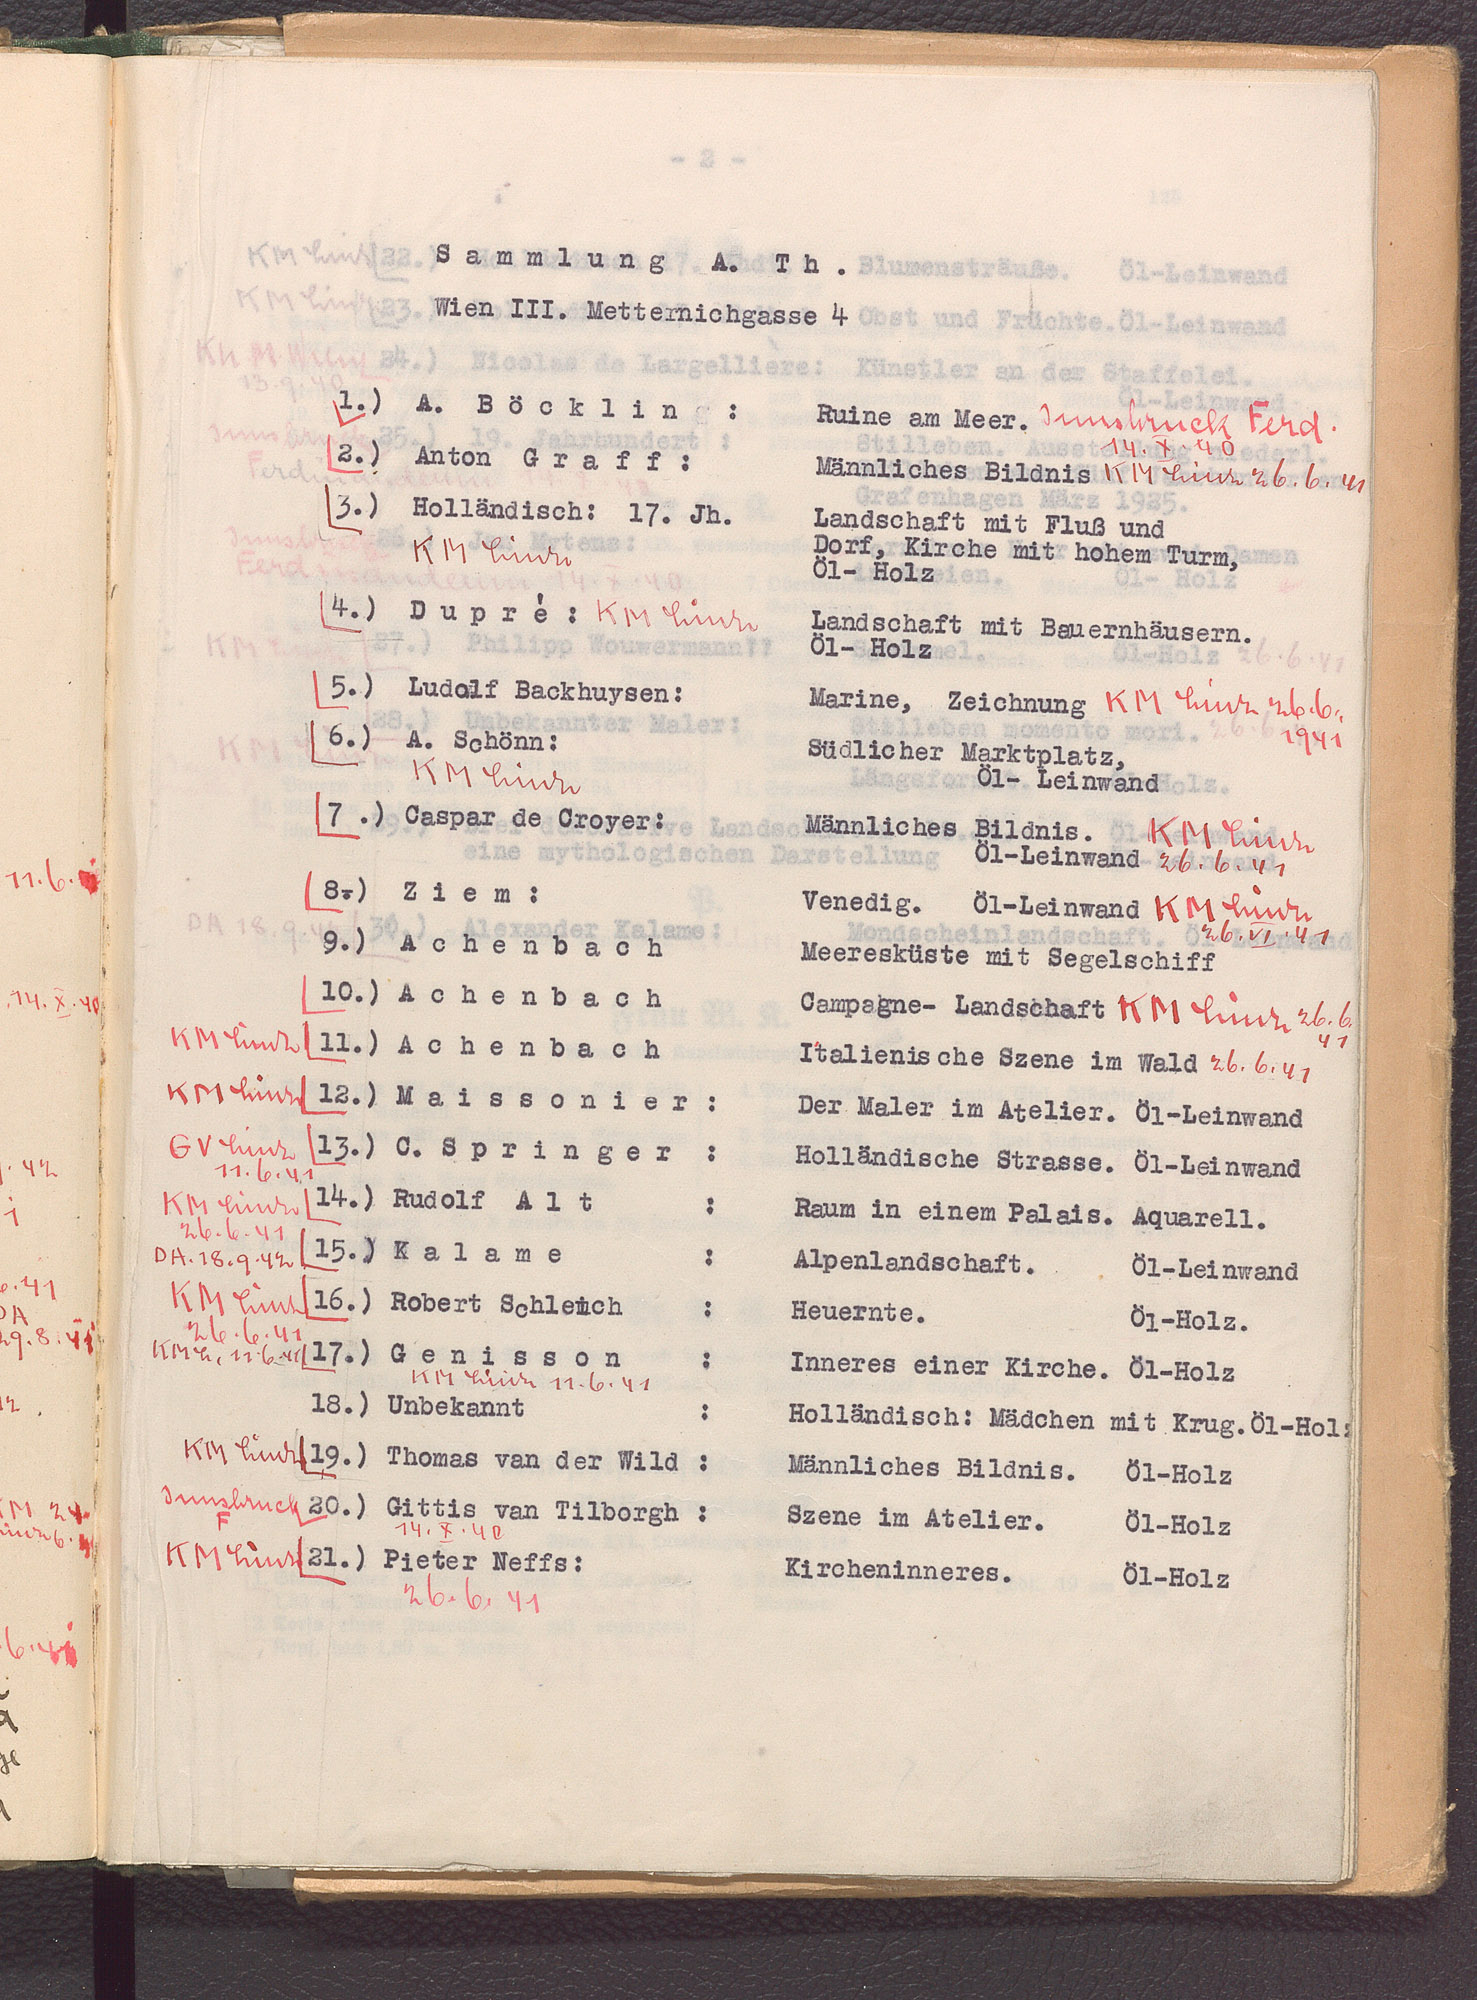 Sammlung A. Th.
Wien III. Metternichgasse 4
1.) A. Böckling: Ruine am Meer. Innsbruck Ferd.
14.X.40
2.) Anton Graff: Männliches Bildnis KM Linz 26.6.41
3.) Holländisch: 17. Jh. Landschaft mit Fluß und
KM Linz Dorf, Kirche mit hohem Turm,
Öl- Holz
4.) Dupré: KM Linz Landschaft mit Bauernhäusern.
Öl- Holz
5.) Ludolf Backhuysen: Marine, Zeichnung KM Linz 26.6.
1941
6.) A. Schönn: Südlicher Marktplatz,
KM Linz Öl- Leinwand
7.) Caspar de Croyer: Männliches Bildnis. KM Linz
Öl-Leinwand 26.6.41
8.) Ziem: Venedig. Öl-Leinwand KM Linz
26.VI.41
9.) Achenbach Meeresküste mit Segelschiff
10.) Achenbach Campagne- Landschaft KM Linz 26.6.
41
KM Linz 11.) Achenbach Italienische Szene im Wald 26.6.41
KM Linz 12.) Maissonier: Der Maler im Atelier. Öl-Leinwand
GV Linz 13.) C. Springer: Holländische Strasse. Öl-Leinwand
11.6.41
KM Linz 14.) Rudolf Alt: Raum in einem Palais. Aquarell.
26.6.41
DA.18.9.42 15.) Kalame: Alpenlandschaft. Öl-Leinwand
KM Linz 16.) Robert Schleich: Heuernte. Öl-Holz.
26.6.41
KM L. 11.6.41 17.) Genisson: Inneres einer Kirche. Öl-Holz
KM Linz 11.6.41
18.) Unbekannt: Holländisch: Mädchen mit Krug. Öl-Holz
KM Linz 19.) Thomas van der Wild: Männliches Bildnis. Öl-Holz
Innsbruck 20.) Gittis van Tilborgh: Szene im Atelier. Öl-Holz
F 14.X.40
KM Linz 21.) Pieter Neffs: Kircheninneres. Öl-Holz
26.6.41